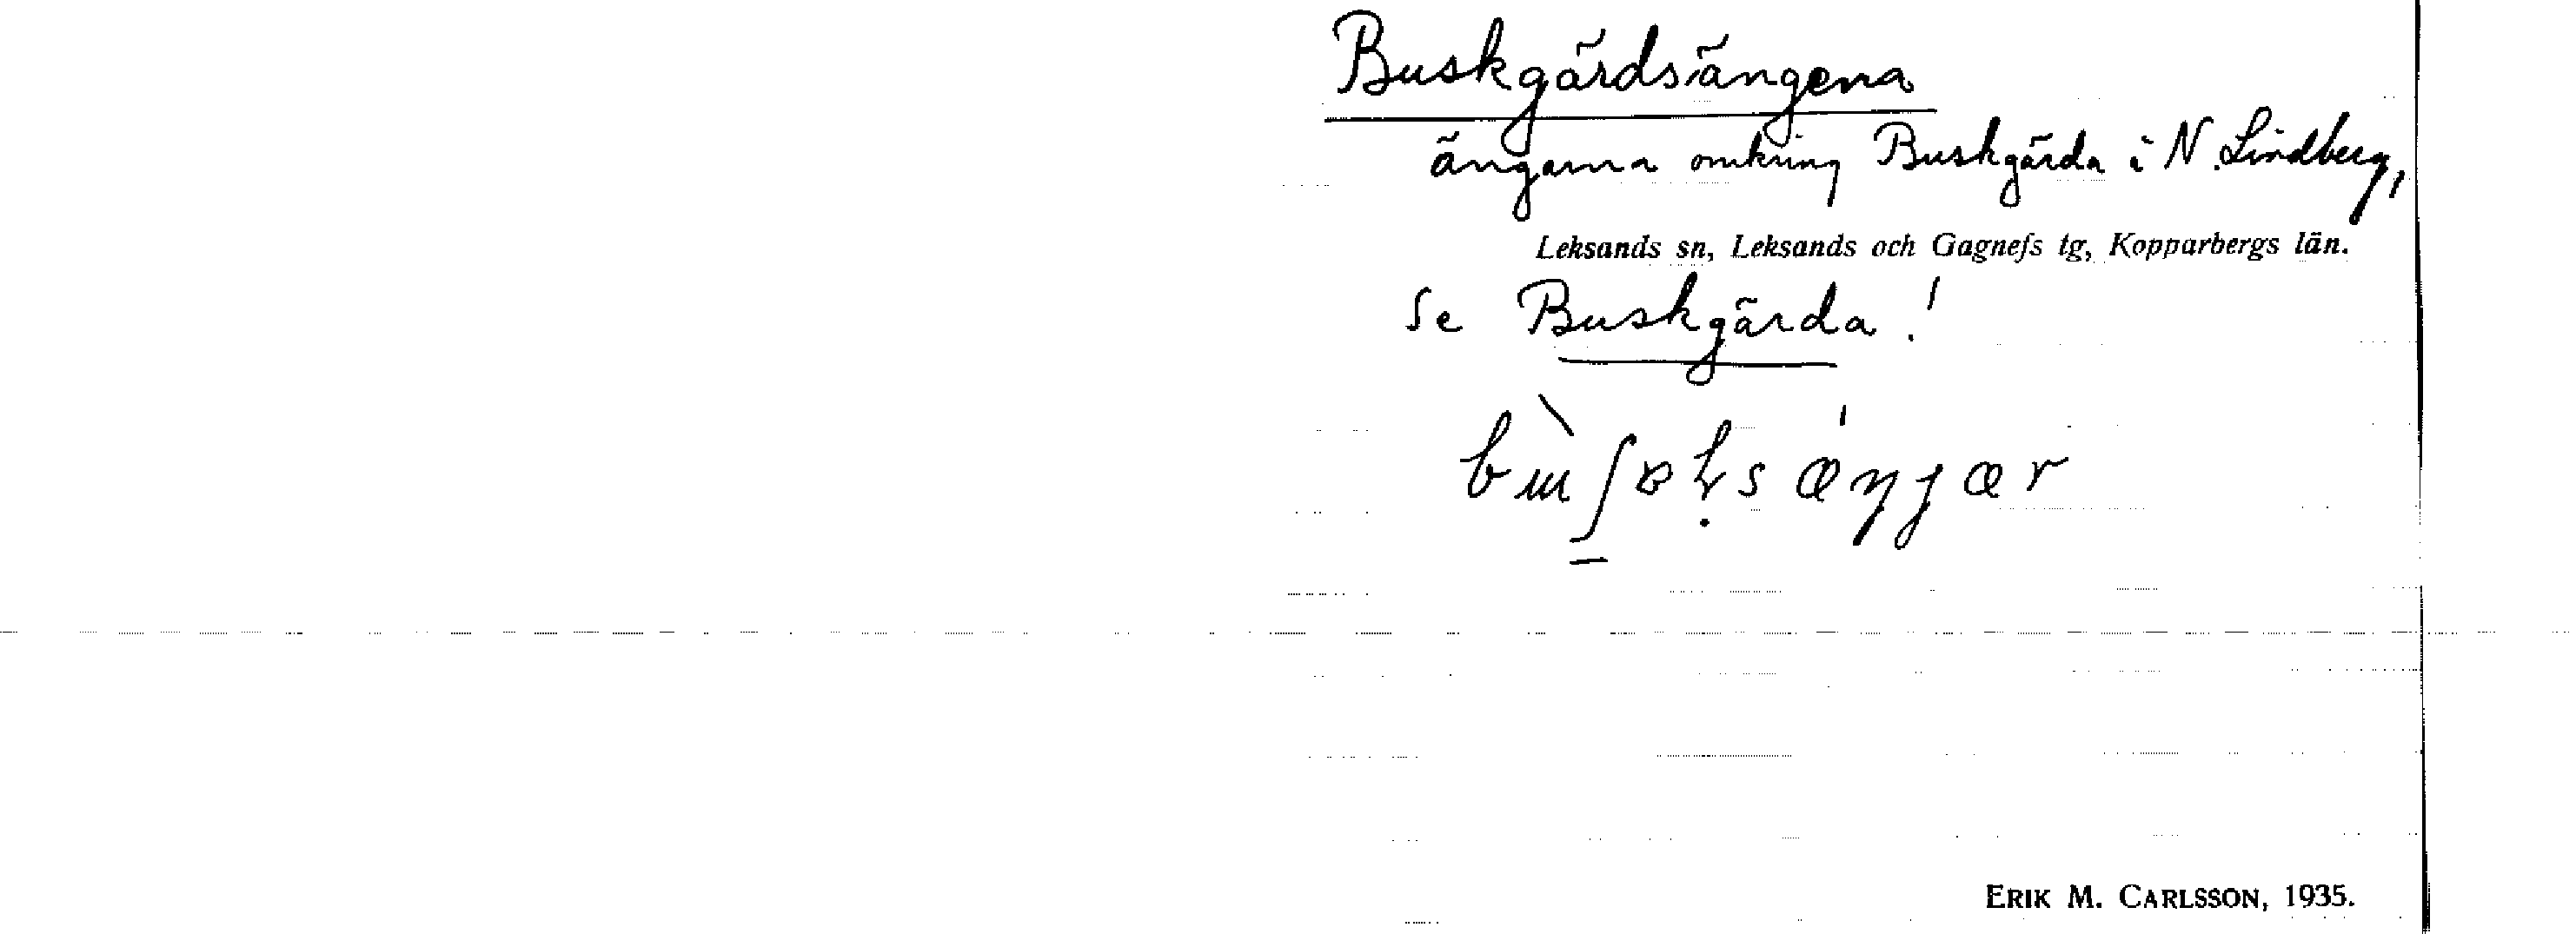 Buskgärdsängena
ängarna omkring Buskgärda i N. Lindberg,
Leksands sn, Leksands och Gagnefs tg, Kopparbergs län.
Se Buskgärda!
ERIK M. CARLSSON, 1935.